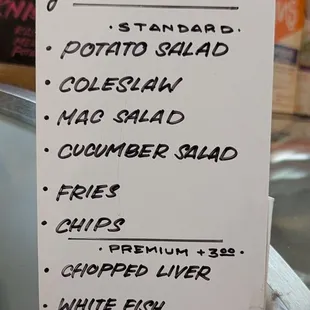 · STANDARD ·
• POTATO SALAD
• COLESLAW
• MAC SALAD
• CUCUMBER SALAD
• FRIES
• CHIPS
· PREMIUM +3.00 ·
• CHOPPED LIVER
• WHITE FISH